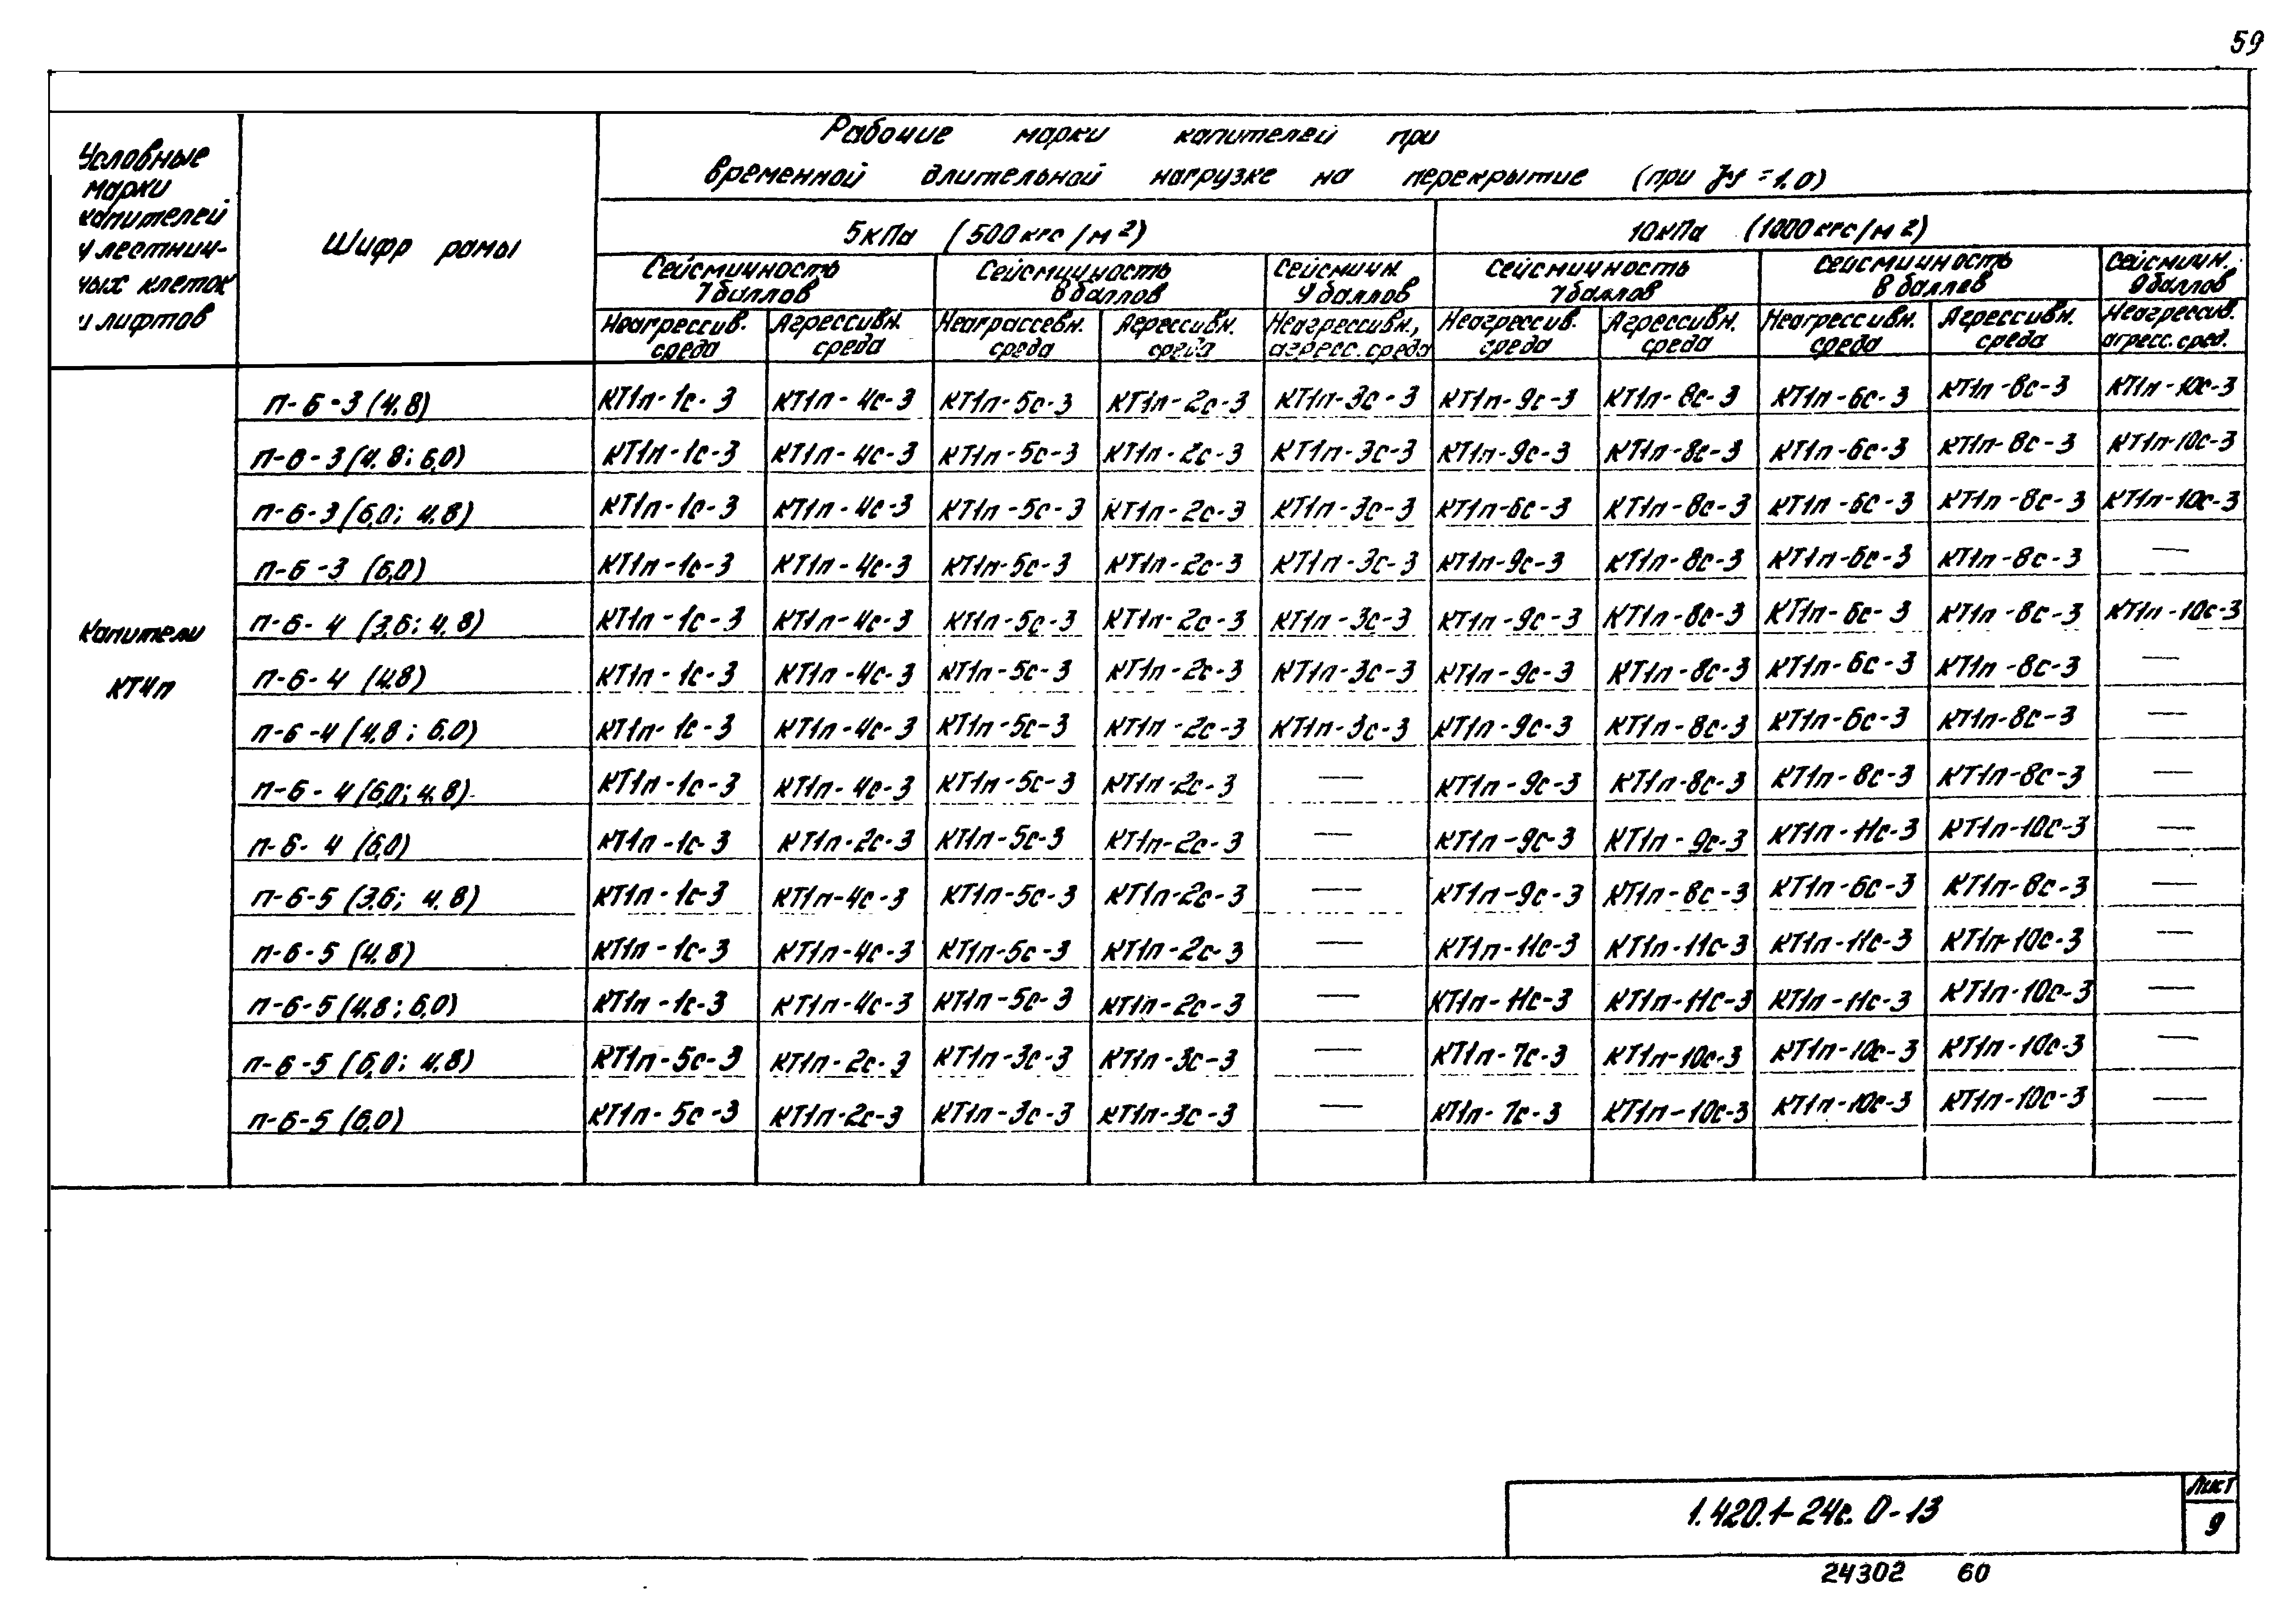 59
Условные марки капителей у лестнич-ных клеток и лифтов
Шифр рамы
Рабочие марки капителей при
временной длительной нагрузке на перекрытие (при γf = 1,0)
5кПа (500кгс/м²) 10кПа (1000кгс/м²)
Сейсмичность 7баллов Сейсмичность 8баллов Сейсмичн. 9баллов Сейсмичность 7баллов Сейсмичность 8баллов Сейсмичн. 9баллов
Неагрессив. среда Агрессивн. среда Неаграссевн. среда Агрессивн. среда Неагрессивн., агресс. среда Неагрессив. среда Агрессивн. среда Неагрессивн. среда Агрессивн. среда Неагрессив. агресс. сред.
П-6-3 (4,8) КТ1п-1с-3 КТ1п-4с-3 КТ1п-5с-3 КТ1п-2с-3 КТ1п-3с-3 КТ1п-9с-3 КТ1п-8с-3 КТ1п-6с-3 КТ1п-8с-3 КТ1п-10с-3
П-6-3 (4,8; 6,0) КТ1п-1с-3 КТ1п-4с-3 КТ1п-5с-3 КТ1п-2с-3 КТ1п-3с-3 КТ1п-9с-3 КТ1п-8с-3 КТ1п-6с-3 КТ1п-8с-3 КТ1п-10с-3
П-6-3 (6,0; 4,8) КТ1п-1с-3 КТ1п-4с-3 КТ1п-5с-3 КТ1п-2с-3 КТ1п-3с-3 КТ1п-6с-3 КТ1п-8с-3 КТ1п-6с-3 КТ1п-8с-3 КТ1п-10с-3
П-6-3 (6,0) КТ1п-1с-3 КТ1п-4с-3 КТ1п-5с-3 КТ1п-2с-3 КТ1п-3с-3 КТ1п-9с-3 КТ1п-8с-3 КТ1п-6с-3 КТ1п-8с-3 —
Капители КТ4п
П-6-4 (3,6; 4,8) КТ1п-1с-3 КТ1п-4с-3 КТ1п-5с-3 КТ1п-2с-3 КТ1п-3с-3 КТ1п-9с-3 КТ1п-8с-3 КТ1п-6с-3 КТ1п-8с-3 КТ1п-10с-3
П-6-4 (4,8) КТ1п-1с-3 КТ1п-4с-3 КТ1п-5с-3 КТ1п-2с-3 КТ1п-3с-3 КТ1п-9с-3 КТ1п-8с-3 КТ1п-6с-3 КТ1п-8с-3 —
П-6-4 (4,8; 6,0) КТ1п-1с-3 КТ1п-4с-3 КТ1п-5с-3 КТ1п-2с-3 КТ1п-3с-3 КТ1п-9с-3 КТ1п-8с-3 КТ1п-6с-3 КТ1п-8с-3 —
П-6-4 (6,0; 4,8) КТ1п-1с-3 КТ1п-4с-3 КТ1п-5с-3 КТ1п-2с-3 — КТ1п-9с-3 КТ1п-8с-3 КТ1п-8с-3 КТ1п-8с-3 —
П-6-4 (6,0) КТ1п-1с-3 КТ1п-2с-3 КТ1п-5с-3 КТ1п-2с-3 — КТ1п-9с-3 КТ1п-9с-3 КТ1п-11с-3 КТ1п-10с-3 —
П-6-5 (3,6; 4,8) КТ1п-1с-3 КТ1п-4с-3 КТ1п-5с-3 КТ1п-2с-3 — КТ1п-9с-3 КТ1п-8с-3 КТ1п-6с-3 КТ1п-8с-3 —
П-6-5 (4,8) КТ1п-1с-3 КТ1п-4с-3 КТ1п-5с-3 КТ1п-2с-3 — КТ1п-11с-3 КТ1п-11с-3 КТ1п-11с-3 КТ1п-10с-3 —
П-6-5 (4,8; 6,0) КТ1п-1с-3 КТ1п-4с-3 КТ1п-5с-3 КТ1п-2с-3 — КТ1п-11с-3 КТ1п-11с-3 КТ1п-11с-3 КТ1п-10с-3 —
П-6-5 (6,0; 4,8) КТ1п-5с-3 КТ1п-2с-3 КТ1п-3с-3 КТ1п-3с-3 — КТ1п-7с-3 КТ1п-10с-3 КТ1п-10с-3 КТ1п-10с-3 —
П-6-5 (6,0) КТ1п-5с-3 КТ1п-2с-3 КТ1п-3с-3 КТ1п-3с-3 — КТ1п-7с-3 КТ1п-10с-3 КТ1п-10с-3 КТ1п-10с-3 —
1.420.1-24с. 0-13
Лист
9
24302 60